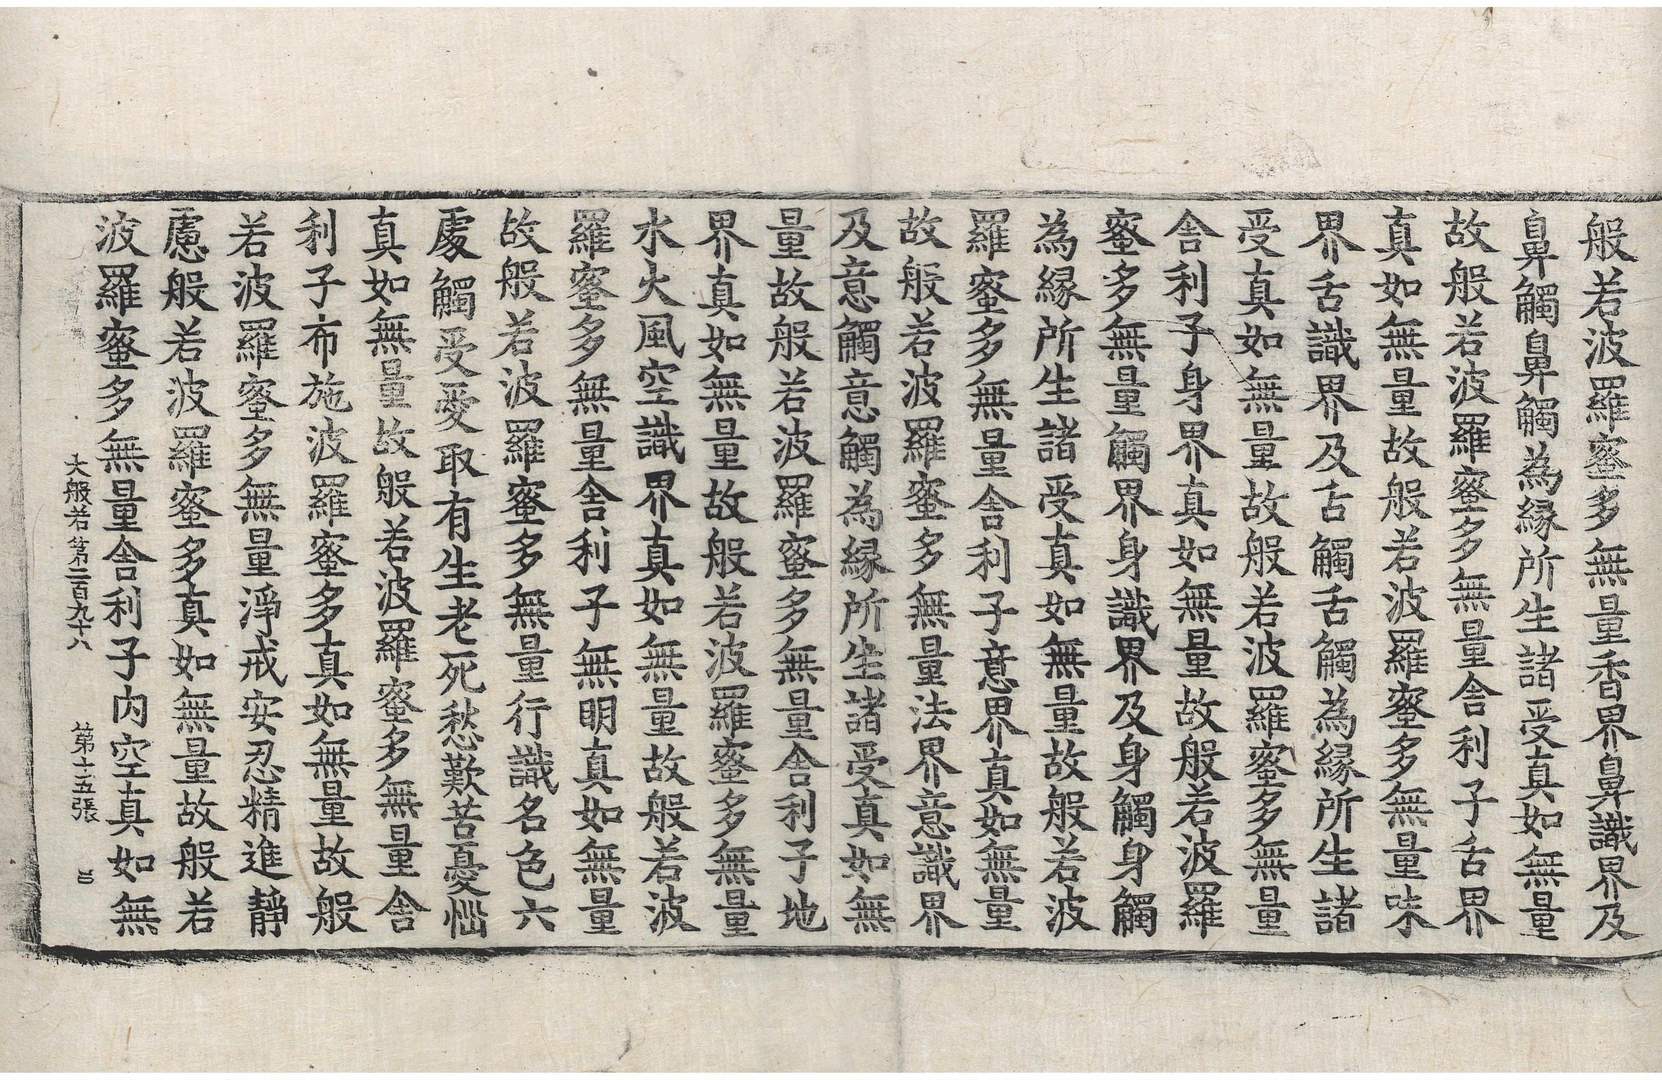 般若波羅蜜多無量香界鼻識界及
鼻觸鼻觸為緣所生諸受真如無量
故般若波羅蜜多無量舍利子舌界
真如無量故般若波羅蜜多無量味
界舌識界及舌觸舌觸為緣所生諸
受真如無量故般若波羅蜜多無量
舍利子身界真如無量故般若波羅
蜜多無量觸界身識界及身觸身觸
為緣所生諸受真如無量故般若波
羅蜜多無量舍利子意界真如無量
故般若波羅蜜多無量法界意識界
及意觸意觸為緣所生諸受真如無
量故般若波羅蜜多無量舍利子地
界真如無量故般若波羅蜜多無量
水火風空識界真如無量故般若波
羅蜜多無量舍利子無明真如無量
故般若波羅蜜多無量行識名色六
處觸受愛取有生老死愁歎苦憂惱
真如無量故般若波羅蜜多無量舍
利子布施波羅蜜多真如無量故般
若波羅蜜多無量淨戒安忍精進靜
慮般若波羅蜜多真如無量故般若
波羅蜜多無量舍利子內空真如無
大般若第二百九十六 第十五張